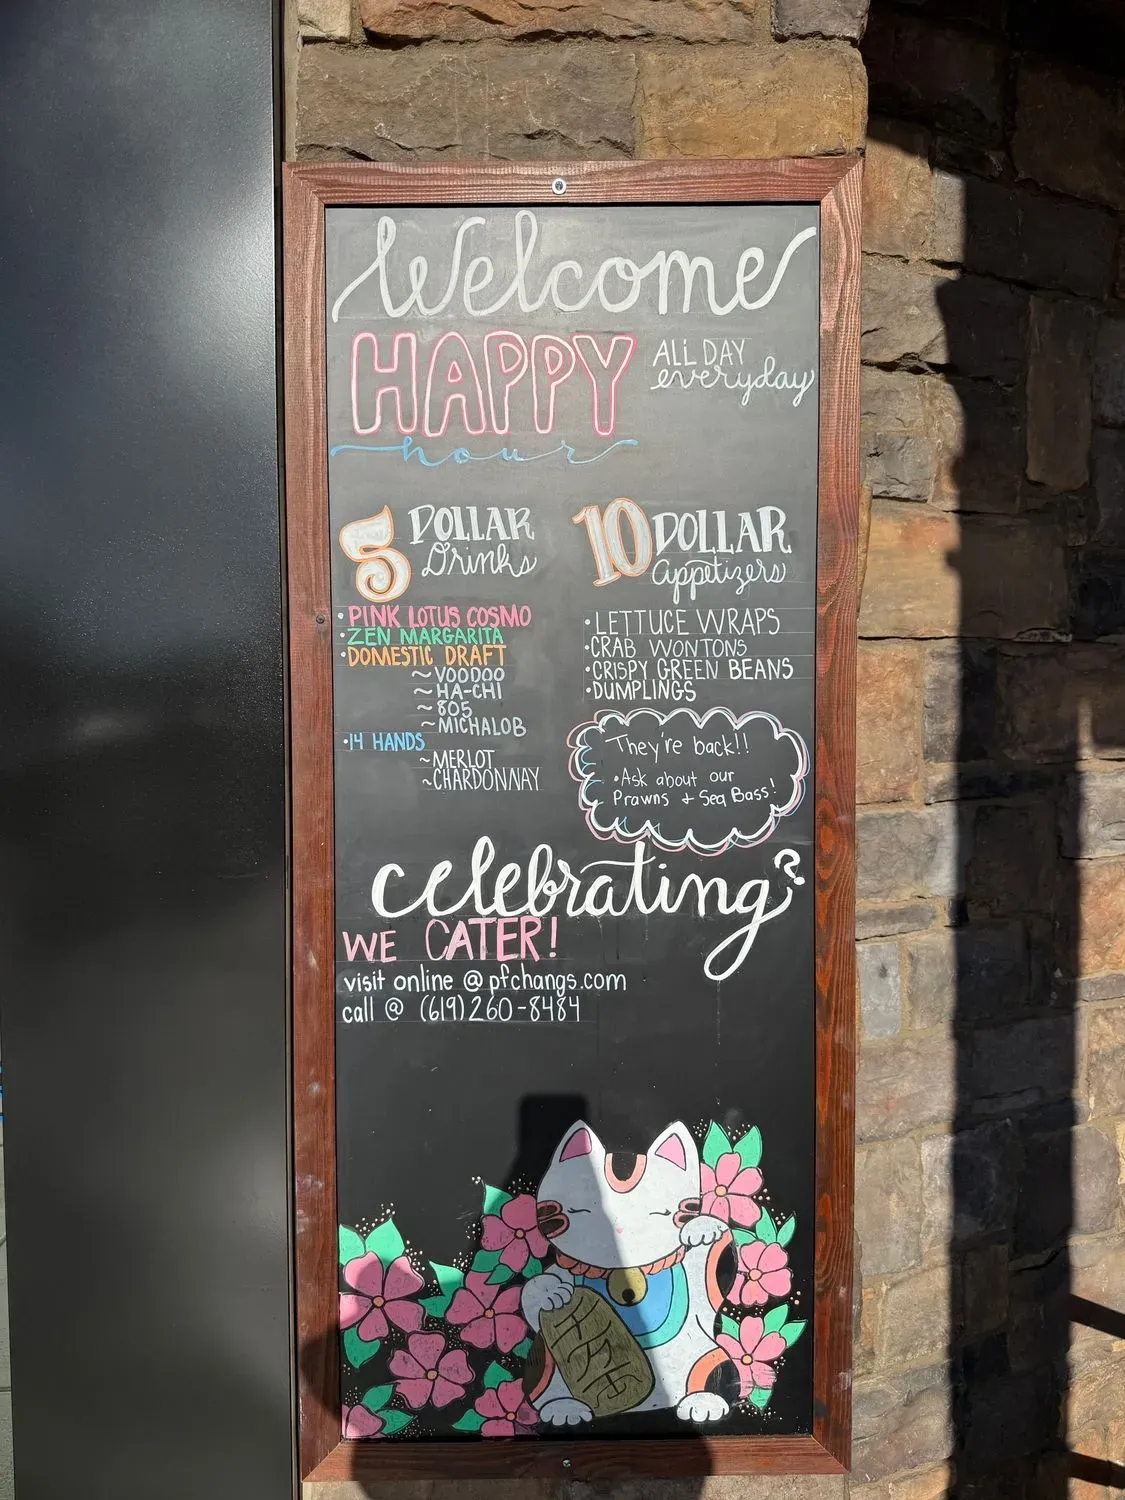 Welcome
HAPPY ALL DAY
everyday
hour
5 DOLLAR
Drinks
• PINK LOTUS COSMO
• ZEN MARGARITA
• DOMESTIC DRAFT
~ VOODOO
~ HA-CHI
~ 805
~ MICHALOB
• 14 HANDS
~ MERLOT
~ CHARDONNAY
10 DOLLAR
appetizers
• LETTUCE WRAPS
• CRAB WONTONS
• CRISPY GREEN BEANS
• DUMPLINGS
They're back!!
• Ask about our
Prawns + Sea Bass!
celebrating?
WE CATER!
visit online @ pfchangs.com
call @ (619) 260-8484